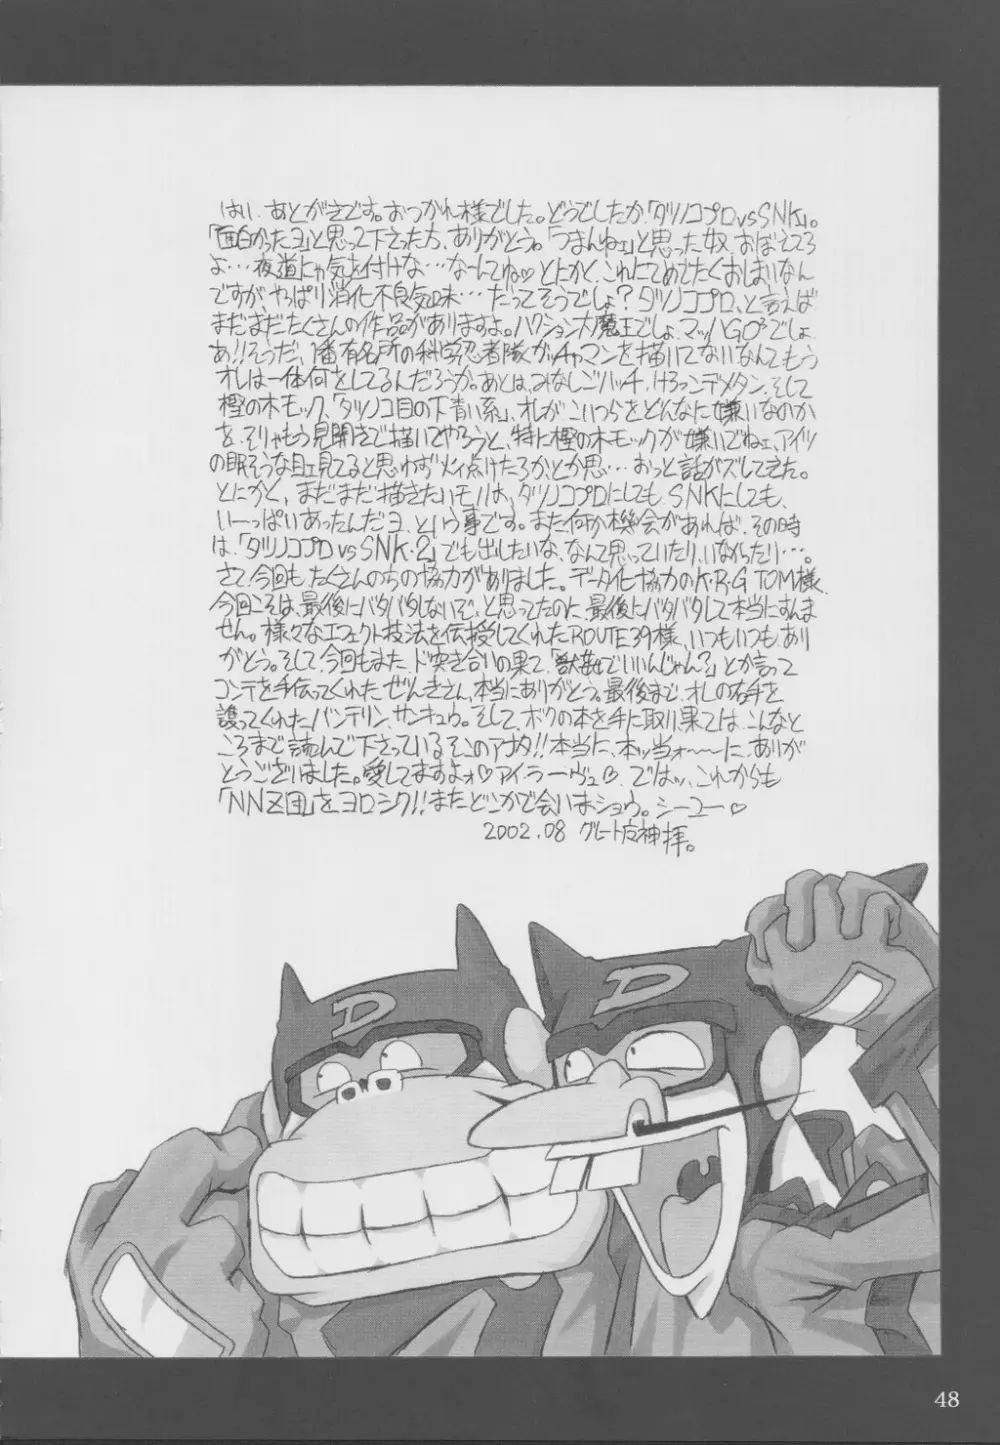 はい、あとがきです。おつかれ様でした。どうでしたか、「タツノコプロvsSNK」。
「面白かったヨ」と思って下さった方、ありがとう。「つまんねェ」と思った奴、おぼえてろ
よ…夜道にゃ気を付けな…なーんてね♡とにかく、これにてめでたくおしまいなん
ですが、やっぱり消化不良気味…だってそうでしょ?タツノコプロ、と言えば
まだまだたくさんの作品がありますよ。ハクション大魔王でしょ、マッハGO³でしょ、
あ!!そうだ、1番有名所の科学忍者隊ガッチャマンを描いてないなんてもう
オレは一体何をしてるんだろうか。あとは、みなしごハッチ、けろっこデメタン、そして
樫の木モック、「タツノコ目の下青い系」、オレがこいつらをどんなに嫌いなのか
を、そりゃもう見開きで描いてやろうと、特に樫の木モックが嫌いでねェ、アイツ
の眠そうな目ェ見てると思わず火ィ点けたろかとか思…おっと話がズレてきた。
とにかく、まだまだ描きたいモノは、タツノコプロにしてもSNKにしても、
いーっぱいあったんだヨ、という事です。また何か機会があれば、その時
は、「タツノコプロvsSNK・2」でも出したいな、なんて思っていたり、いなかったり…。
さて、今回も、たくさんのちの協力がありました。データ化協力のK・R・G TOM様、
今回こそは、最後にバタバタしないぞ、と思ってたのに、最後にバタバタして本当にすんま
せん。様々なエフェクト技法を伝授してくれたROUTE39様、いつもいつも、あり
がとう。そして、今回もまた、ド突き合いの果て、「獣姦でいいんじゃん?」とか言って
コンテを手伝ってくれた、ぜんきさん、本当にありがとう。最後まで、オレの右手を
護ってくれたバンテリン、サンキュウ。そして、ボクの本を手に取り、果ては、こんなと
ころまで読んで下さっているそこのアナタ!!本当に、本ッ当ォ〜〜に、ありが
とうございました。愛してますよォ♡アイ・ラーヴュ♡ではッ、これからも
「NNZ団」をヨロシク!!またどこかで会いまショウ。シーユー♡
2002.08 グレート 神 拝。
D
D
48